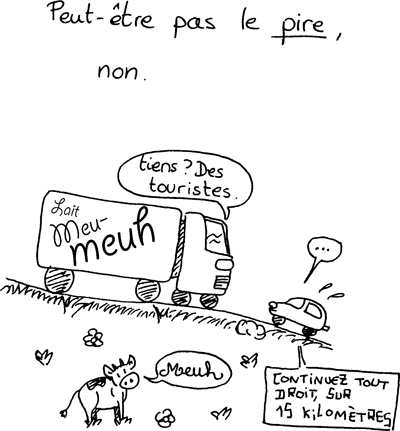 Peut-être pas le pire,
non.
tiens ? Des
touristes.
Lait
Meu-
meuh
...
Meuh
CONTINUEZ TOUT
DROIT, SUR
15 KILOMÈTRES